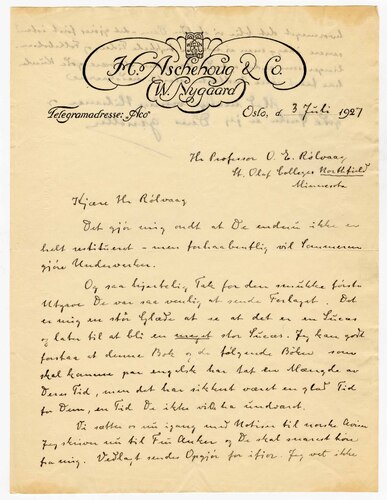 H. Aschehoug & Co.
(W. Nygaard)
Telegramadresse: "Aco"
Oslo, d. 3 Juli 1927
Hr Professor O. E. Rölvaag
St. Olaf College Northfield
Minnesota
Kjære Hr Rölvaag
Det gjör mig ondt at De endnu ikke er
helt restitueret – men forhaabentlig vil Sommeren
gjöre Underverker.
Og saa hjertelig Tak for den smukke förste
Utgave De var saa venlig at sende Forlaget. Det
er mig en stor Glæde at se at det er en Succes
og later til at bli en meget stor Succes. Jeg kan godt
forstaa at denne Bok og de fölgende Böker som
skal komme paa engelsk har tat en Mængde av
Deres Tid, men det har sikkert været en glad Tid
for Dem, en Tid De ikke vilde ha undvært.
Vi sætter os nu igang med Notiser til norske Aviser
Jeg skriver nu til Fru Anker og De skal snarest höre
fra mig. Vedlagt sendes Opgjör for ifjor. Jeg vet ikke